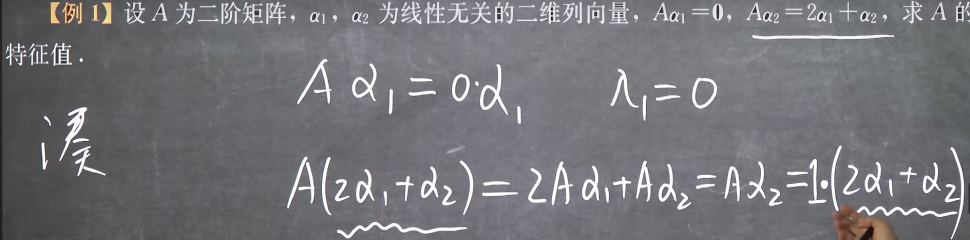 【例1】设 A 为二阶矩阵，α₁，α₂ 为线性无关的二维列向量，Aα₁=0，Aα₂=2α₁+α₂，求 A 的
特征值．
Aα₁=0·α₁ λ₁=0
凑
A(2α₁+α₂)=2Aα₁+Aα₂=Aα₂=1·(2α₁+α₂)